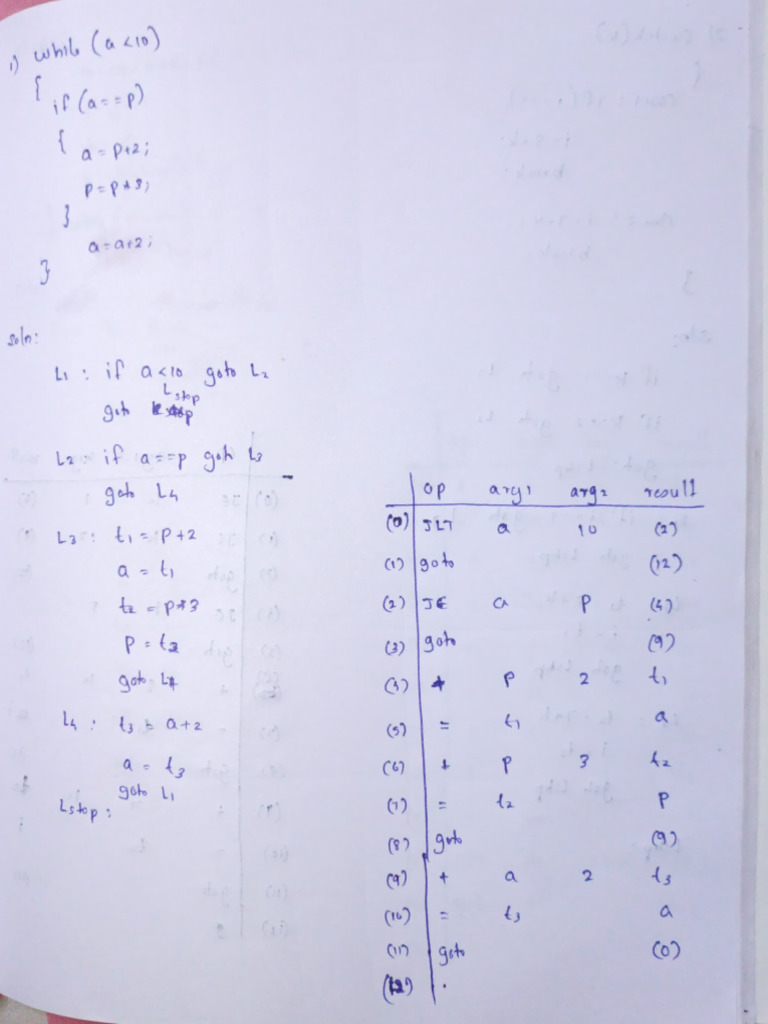 1) while (a<10)
{
if (a==p)
{ a=p+2;
p=p*3;
}
a=a+2;
}
soln:
L1 : if a<10 goto L2
goto Lstop
L2 : if a==p goto L3
goto L4
L3 : t1 = p+2
a = t1
t2 = p*3
p = t2
goto L4
L4 : t3 = a+2
a = t3
goto L1
Lstop :
op arg1 arg2 result
(0) JLT a 10 (2)
(1) goto (12)
(2) JE a p (4)
(3) goto (9)
(4) + p 2 t1
(5) = t1 a
(6) + p 3 t2
(7) = t2 p
(8) goto (9)
(9) + a 2 t3
(10) = t3 a
(11) goto (0)
(12) .